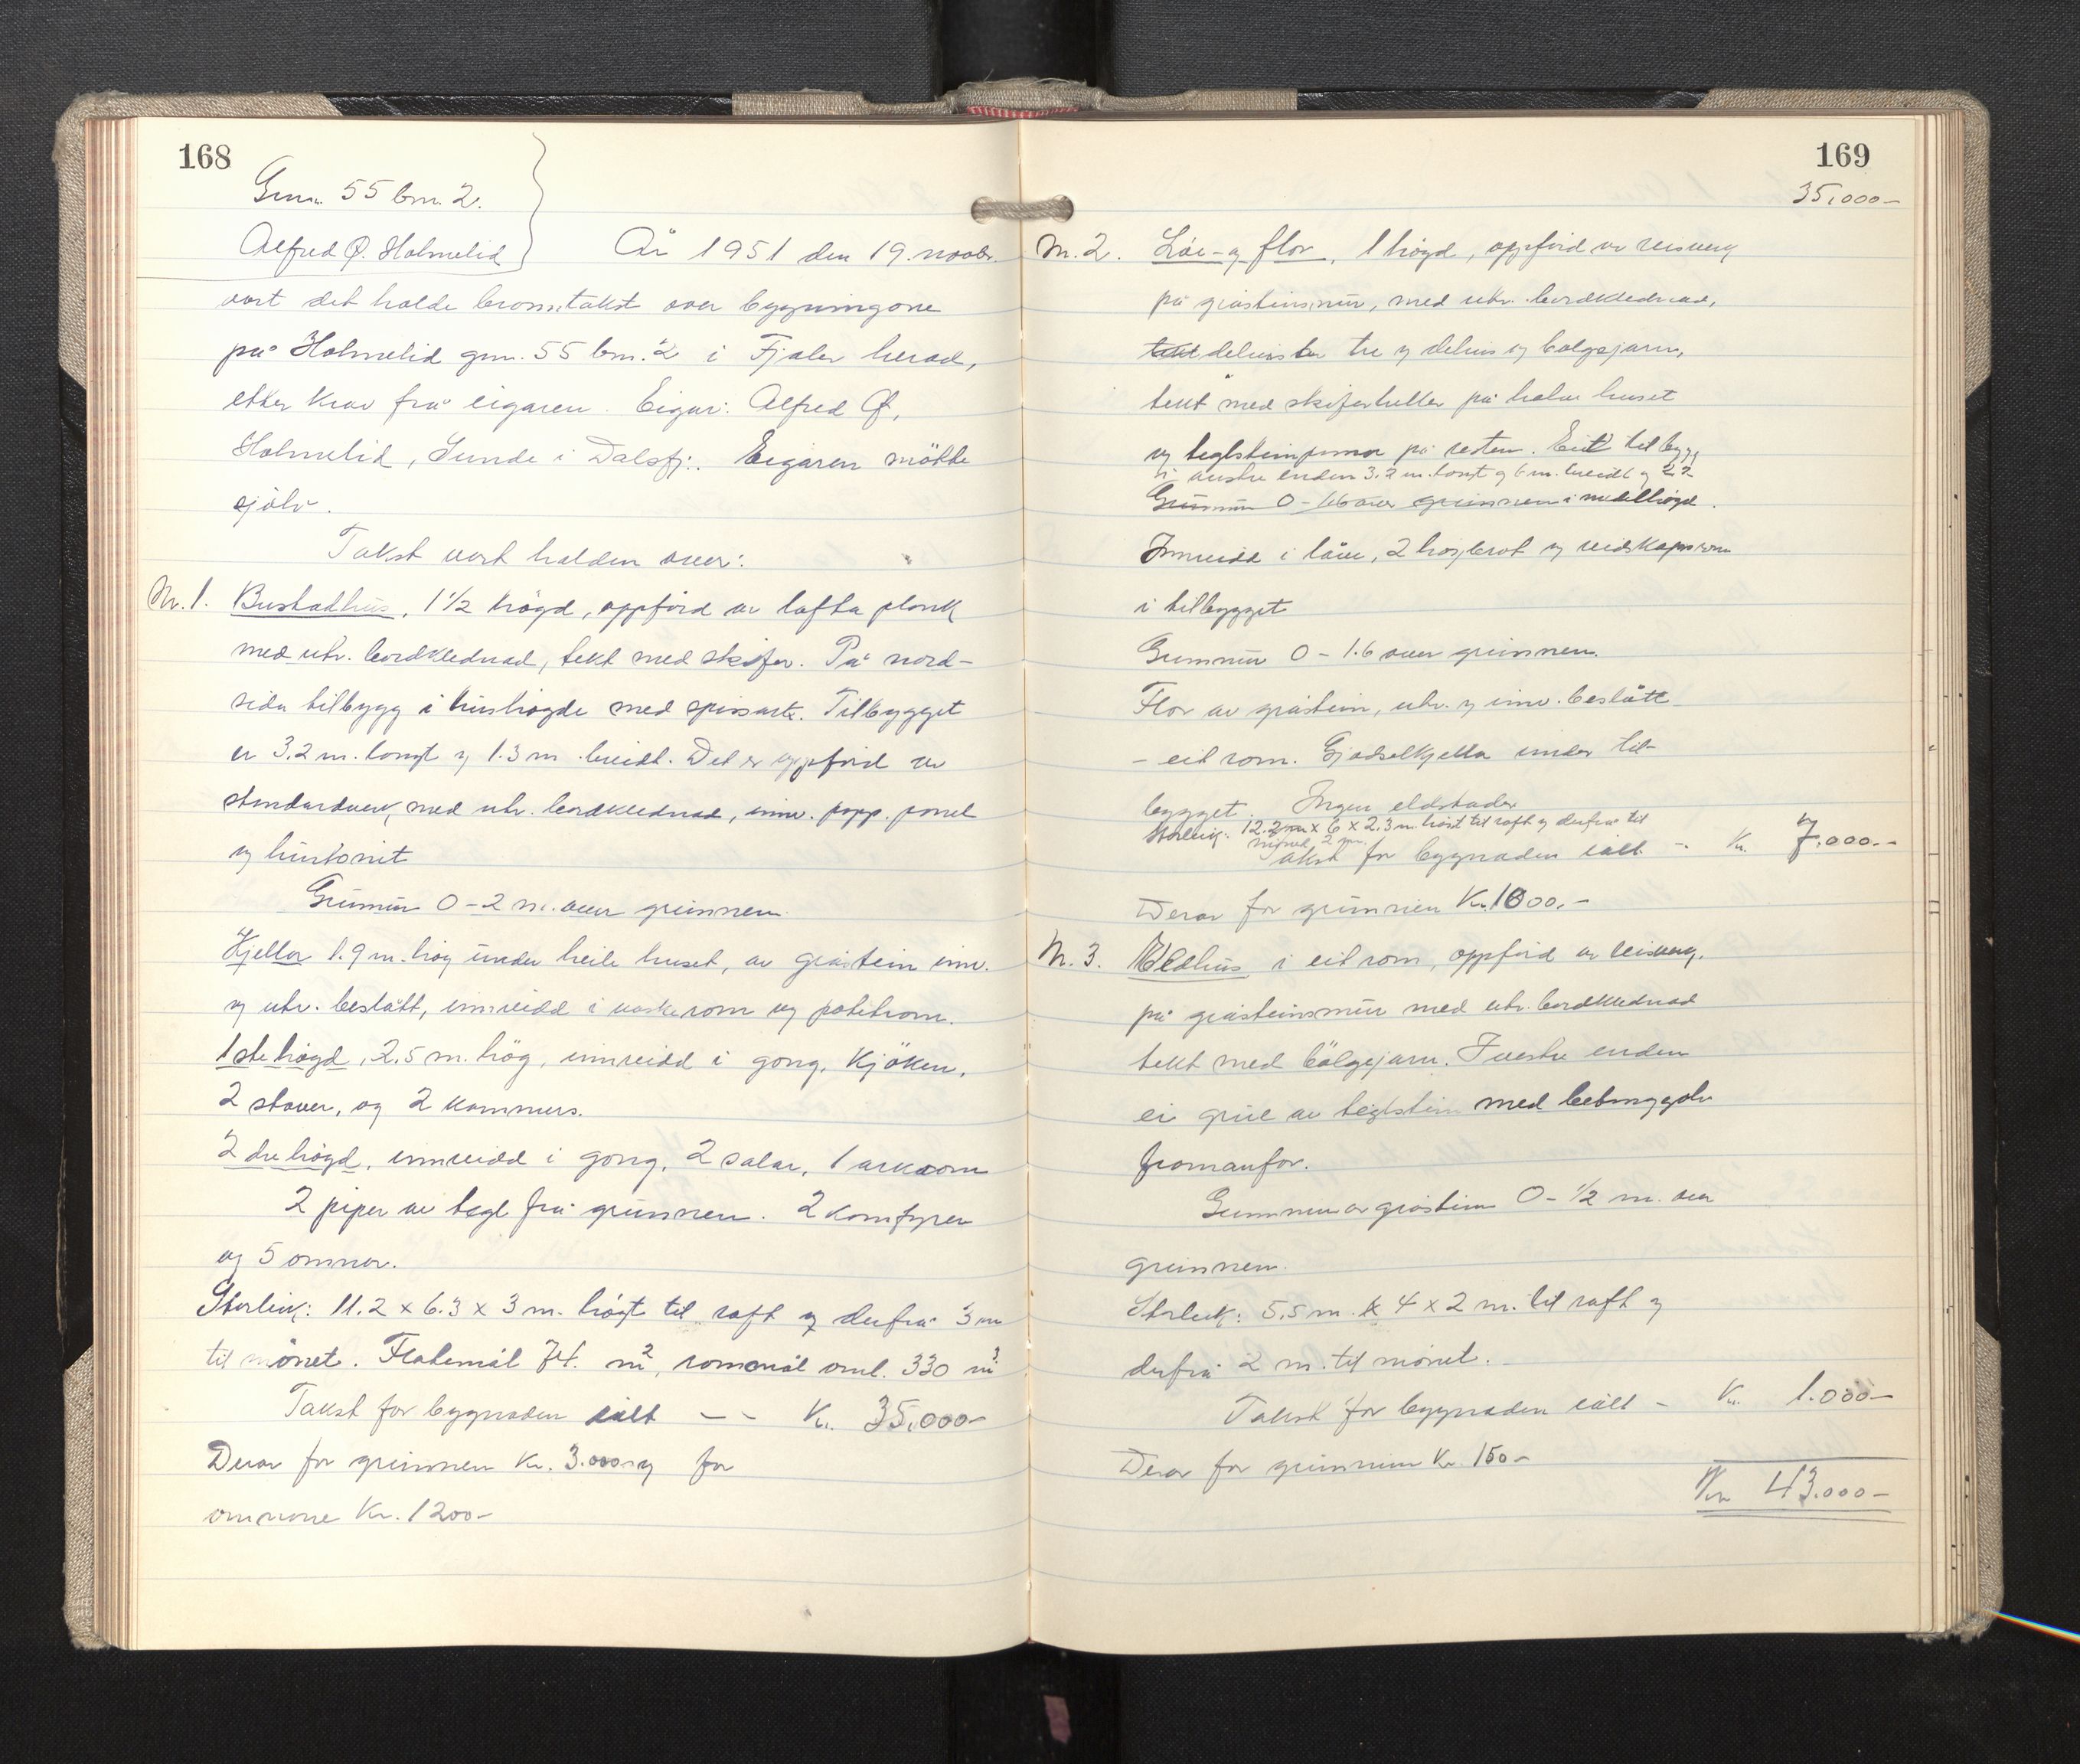 168
Gnr. 55 bnr. 2.
Alfred Q. Holmelid
År 1951 den 19. novbr.
vart det halde branntakst over bygningane
på Holmelid gnr. 55 bnr. 2 i Fjaler herad,
etter krav frå eigaren. Eigar: Alfred Q.
Holmelid, Sunde i Dalsfj.. Eigaren møtte
sjølv.
Takst vart halden over:
Nr. 1. Bustadhus, 1 1/2 høgd, oppførd av lafta plank
med utv. bordklednad, tekt med skifer. På nord-
sida tilbygg i hushøgde med spissark. Tilbygget
er 3.2 m. langt og 1.3 m breidt. Det er oppførd av
standardverk, med utv. bordklednad, innv. papp. panel
og huntonit
Grunmur 0-2 m. over grunnen
Kjellar 1.9 m. høg under heile huset, av gråstein innv.
og utv. beslått, innreidd i vaskerom og potetrom.
1ste høgd, 2.5 m. høg, innreidd i gang, kjøken,
2 stover, og 2 kammers.
2dre høgd, innreidd i gang, 2 salar, 1 arkrom
2 piper av tegl frå grunnen. 2 komfyrer
og 5 omnar.
Storleik: 11.2 x 6.3 x 3 m. høgt til raft og derfrå 3 m
til mønet. Flatemål 74. m², rommål oml. 330 m³
Takst for bygnaden ialt -- Kr. 35.000-
Derav for grunnen Kr. 3.000- og for
omnane Kr. 1200-
169
35.000-
Nr. 2. Løe- og flor, 1 høgd, oppførd av reisverk
på gråsteinsmur, med utv. bordklednad,
delvis av tre og delvis og bølgejarn,
tekt med skiferheller på halve huset
og teglsteinpanner på resten. Eit tilbygg
i austre enden 3.2 m. langt og 6 m. breidt og 2.2
Grunmur 0-1.6 over grunnen i medelhøgd.
Innreidd i låve, 2 høybrot og reidskapsrom
i tilbygget
Grunmur 0-1.6 over grunnen.
Flor av gråstein, utv. og innv. beslått
- eit rom. Gjødselkjellar under til-
bygget. Ingen eldstader
Storleik: 12.2 m x 6 x 2.3 m. høgt til raft og derfrå til
mønet 2 m.
Takst for bygnaden ialt - Kr. 7.000.-
Derav for grunnen Kr. 1000.-
Nr. 3. Eldhus i eit rom, oppførd av reisverk.
på gråsteinsmur med utv. bordklednad
tekt med bølgjejarn. I vestre enden
ei grue av teglstein med betonggolv
framanfor.
Grunmur av gråstein 0-1/2 m. over
grunnen.
Storleik: 5.5 m. x 4 x 2 m. til raft og
derfrå 2 m. til mønet.
Takst for bygnaden ialt - Kr. 1.000-
Derav for grunnen Kr. 150-
Kr. 43.000-